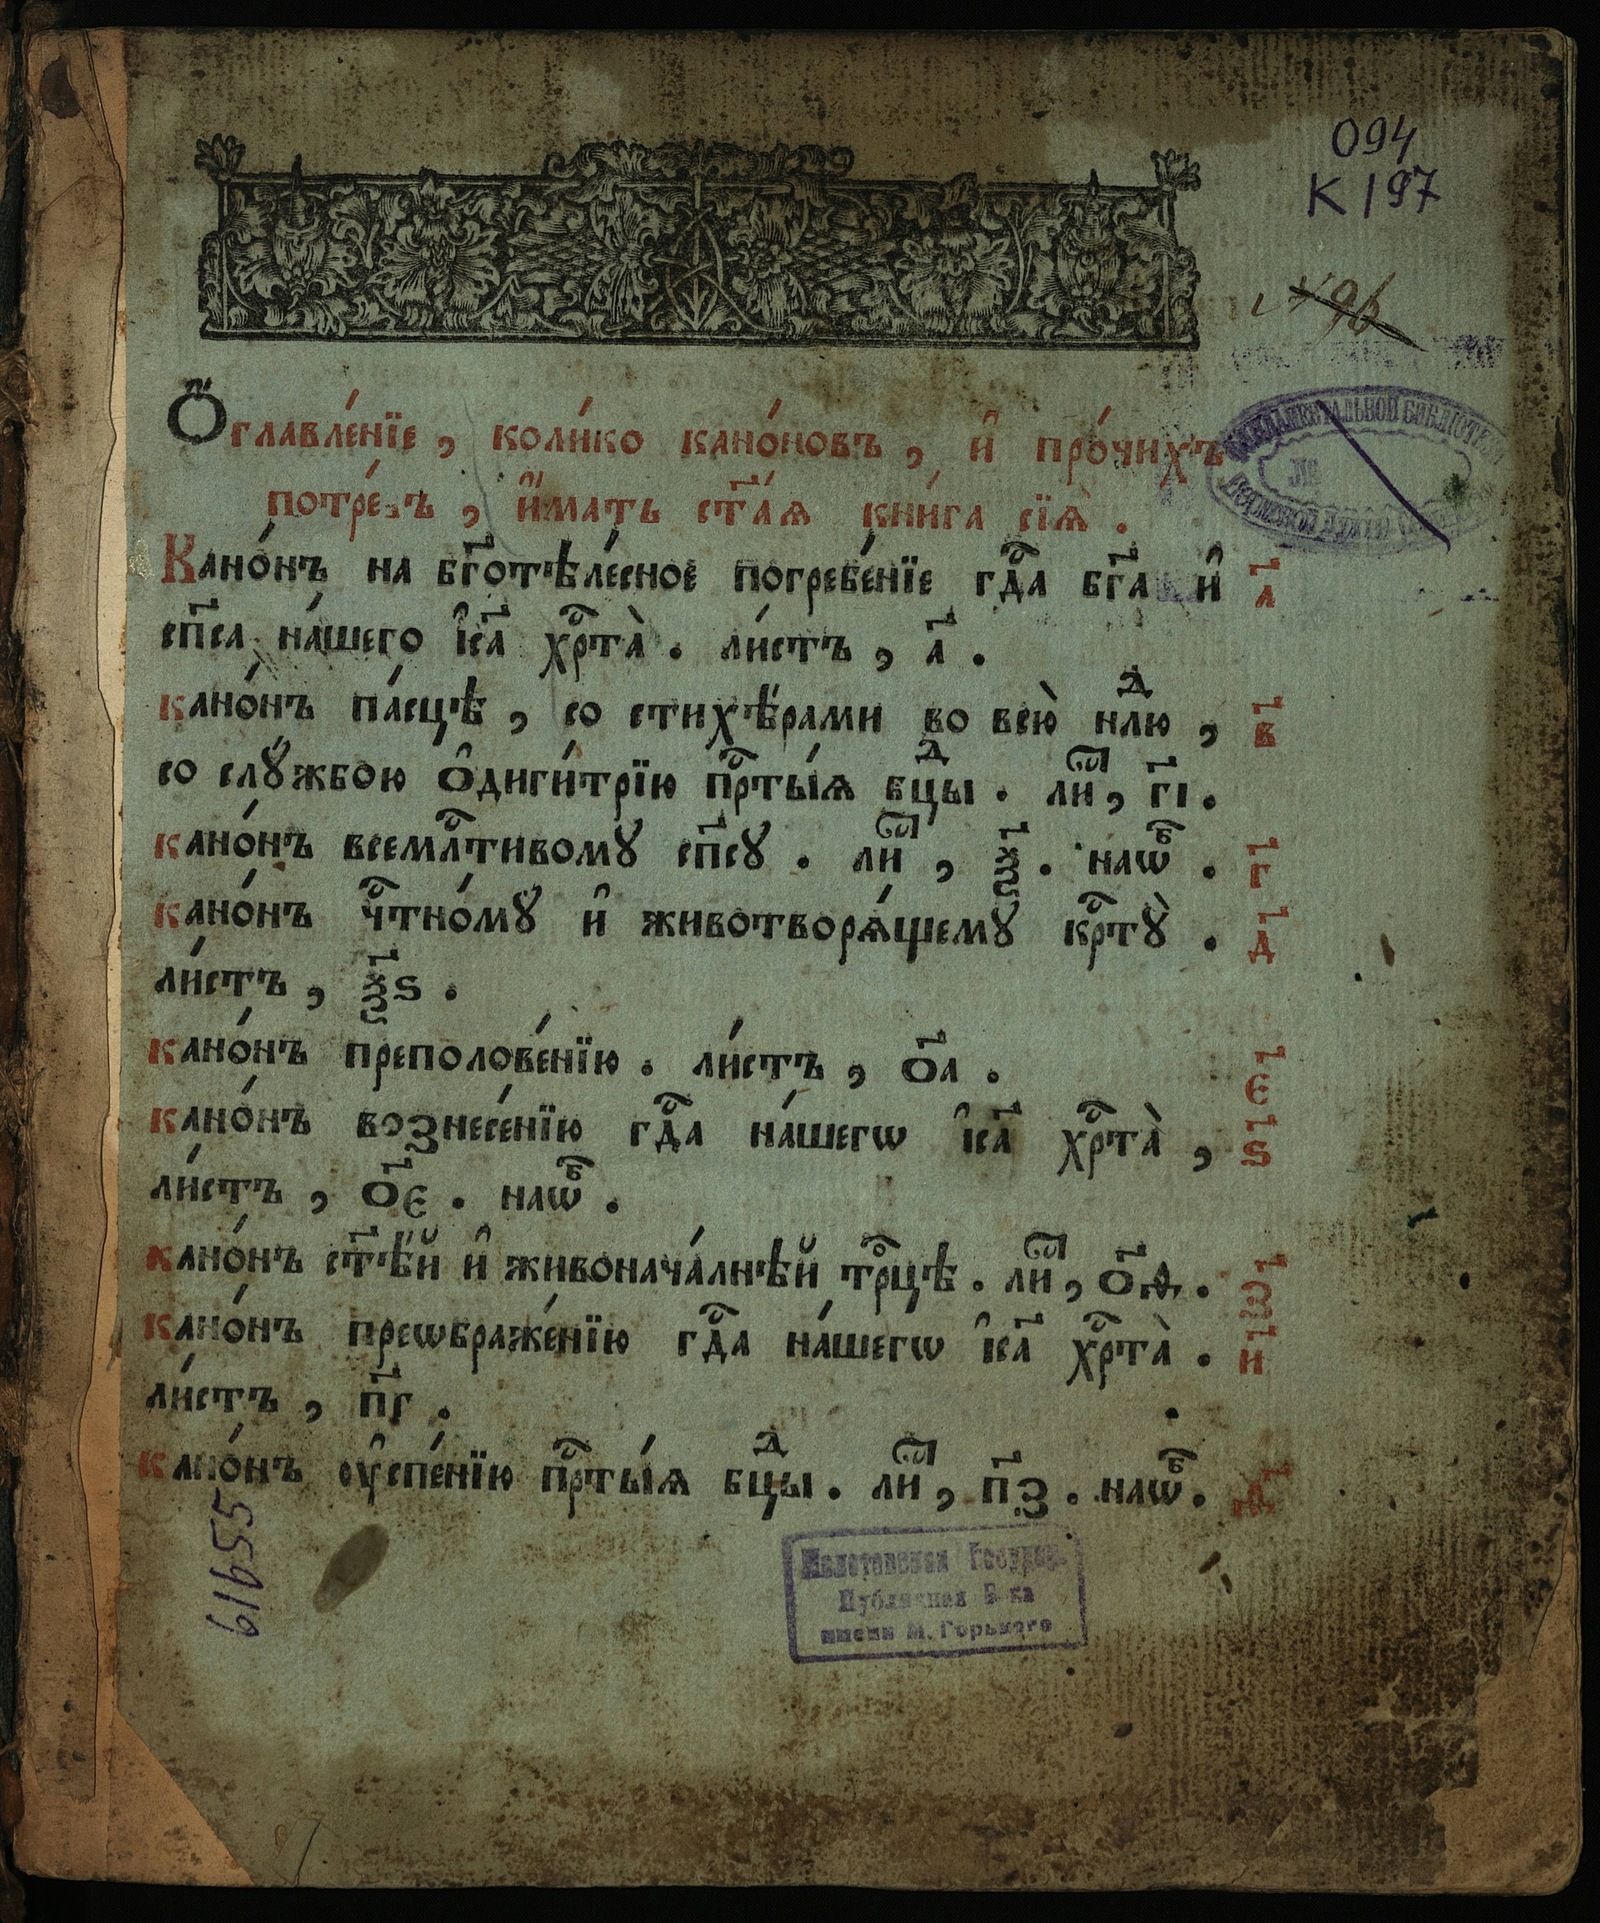 094
К 197
496
Ѻ҆главле́нїе , коли́ко кано́новъ , и҆ про́чихъ
потре́бъ , и҆́мать ст҃а́ѧ кни́га сїѧ̀ .
Кано́нъ на бг҃отѣле́сное погребе́нїе гдⷭ҇а бг҃а и҆ а҃
сп҃са на́шего і҆с҃а хрⷭ҇та̀ . ли́стъ , а҃ .
кано́нъ па́сцѣ , со стихѣ́рами во всю̀ нлⷣю , в҃
со слꙋ́жбою ѻ҆диги́трїю прⷭ҇ты́ѧ бцⷣы . лиⷭ҇ , гі҃ .
кано́нъ всемлⷭ҇тивомꙋ сп҃сꙋ . лиⷭ҇ , ѯ҃ . наѡⷠ҇ . г҃
кано́нъ чⷭ҇тно́мꙋ и҆ животворѧ́щемꙋ крⷭ҇тꙋ̀ . д҃
ли́стъ , ѯ҃ѕ .
кано́нъ преполове́нїю . ли́стъ , ѻ҃а . є҃
кано́нъ вознесе́нїю гдⷭ҇а на́шегѡ і҆с҃а хрⷭ҇та̀ , ѕ҃
ли́стъ , ѻ҃є . наѡⷠ҇ .
кано́нъ ст҃ѣ́й и҆ живонача́лнѣй трⷪ҇цѣ . лиⷭ҇ , ѻ҃ѳ . з҃
кано́нъ преѡбраже́нїю гдⷭ҇а на́шегѡ і҆с҃а хрⷭ҇та̀ . и҃
ли́стъ , п҃г .
кано́нъ ᲂу҆спе́нїю прⷭ҇ты́ѧ бцⷣы . лиⷭ҇ , п҃з . наѡⷠ҇ . ѳ҃
61655
Молотовская Государ.
Публичная Б-ка
имени М. Горького